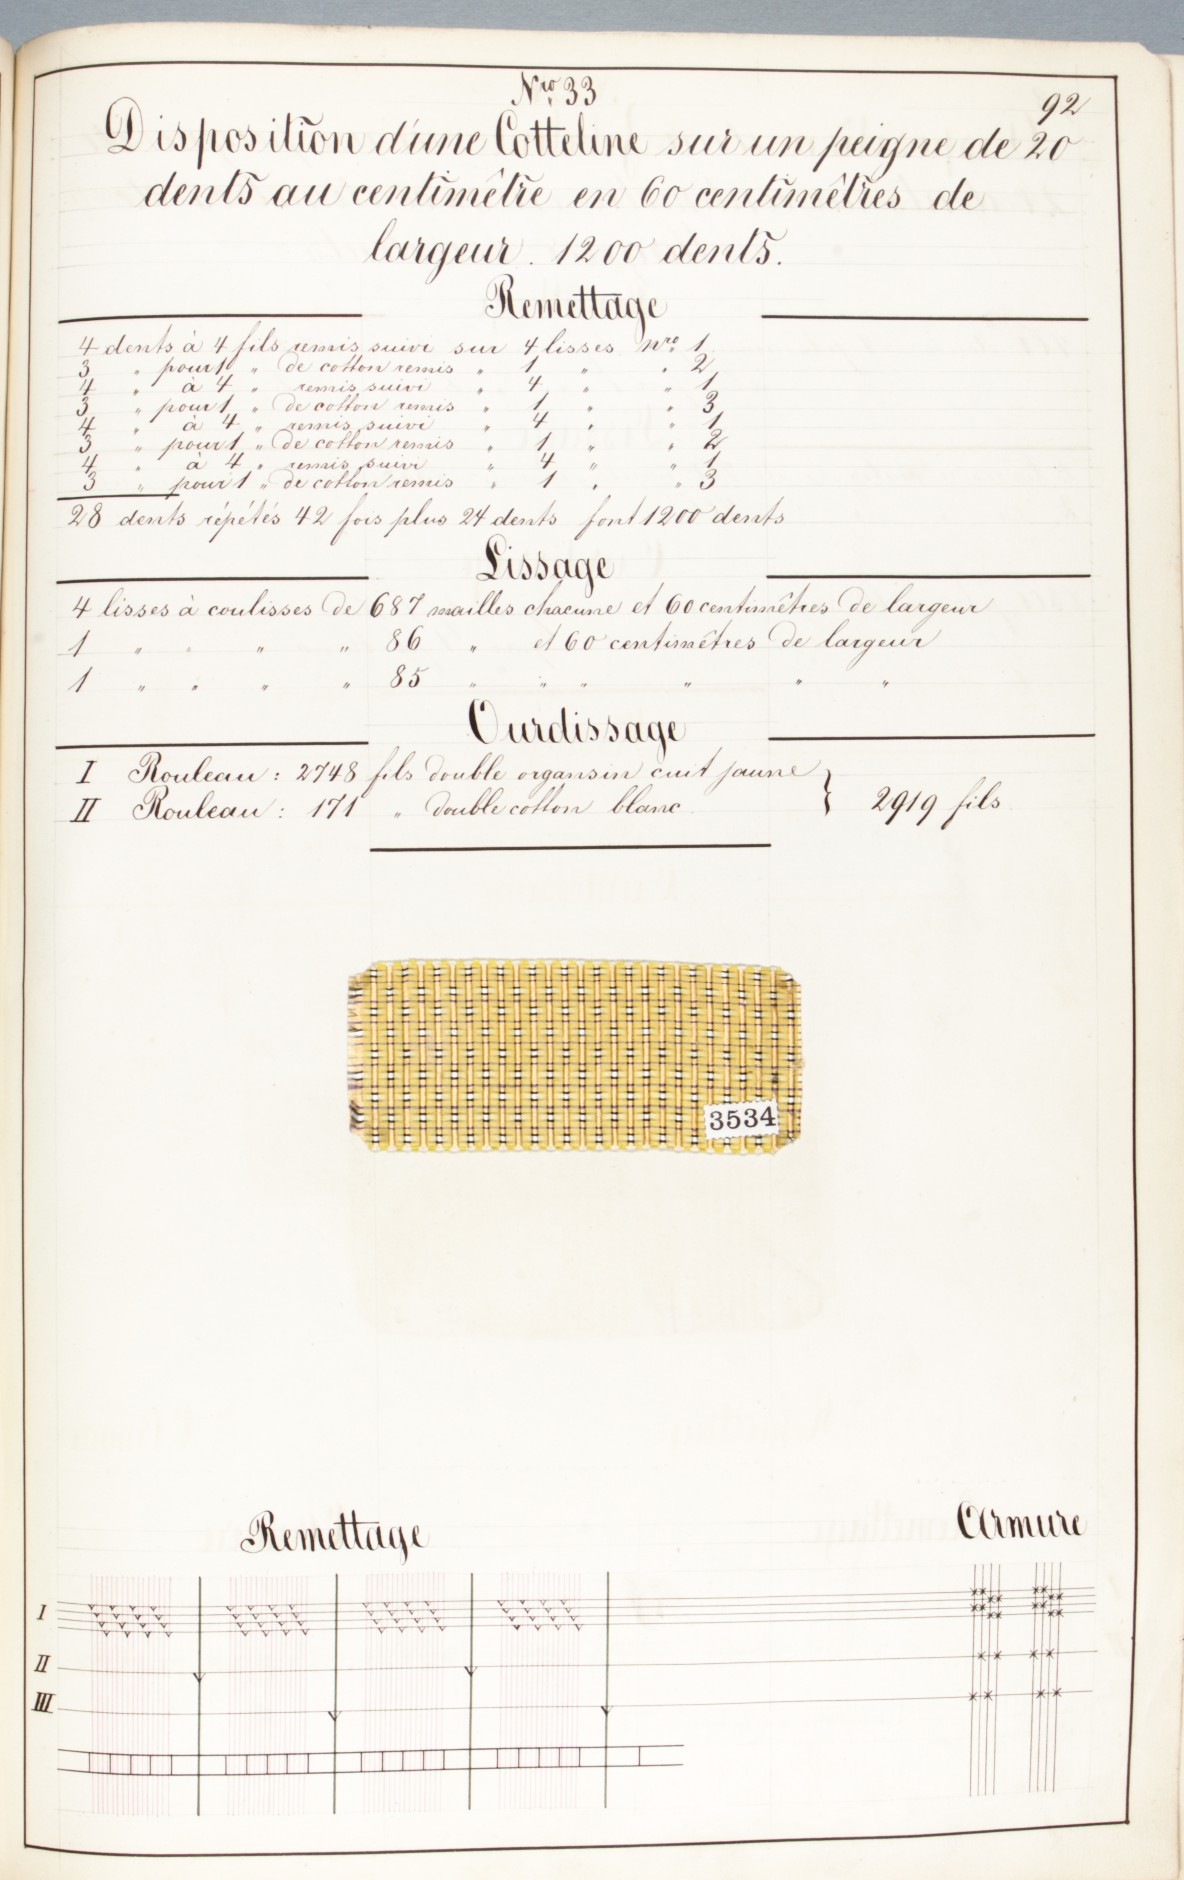 Nro 33
92
Disposition d'une Cotteline sur un peigne de 20
dents au centimêtre en 60 centimêtres de
largeur. 1200 dents.
Remettage
4 dents à 4 fils remis suivi sur 4 lisses Nro 1
3 " pour 1 " de cotton remis " 1 " " 2
4 " à 4 " remis suivi " 4 " " 1
3 " pour 1 " de cotton remis " 1 " " 3
4 " à 4 " remis suivi " 4 " " 1
3 " pour 1 " de cotton remis " 1 " " 2
4 " à 4 " remis suivi " 4 " " 1
3 " pour 1 " de cotton remis " 1 " " 3
28 dents répétés 42 fois plus 24 dents font 1200 dents
Lissage
4 lisses à coulisses de 687 mailles chacune et 60 centimêtres de largeur
1 " " " " 86 " et 60 centimêtres de largeur
1 " " " " 85 " " " " " "
Ourdissage
I Rouleau : 2748 fils double organsin cuit jaune
II Rouleau : 171 " double cotton blanc } 2919 fils
3534
Remettage Armure
I
II
III